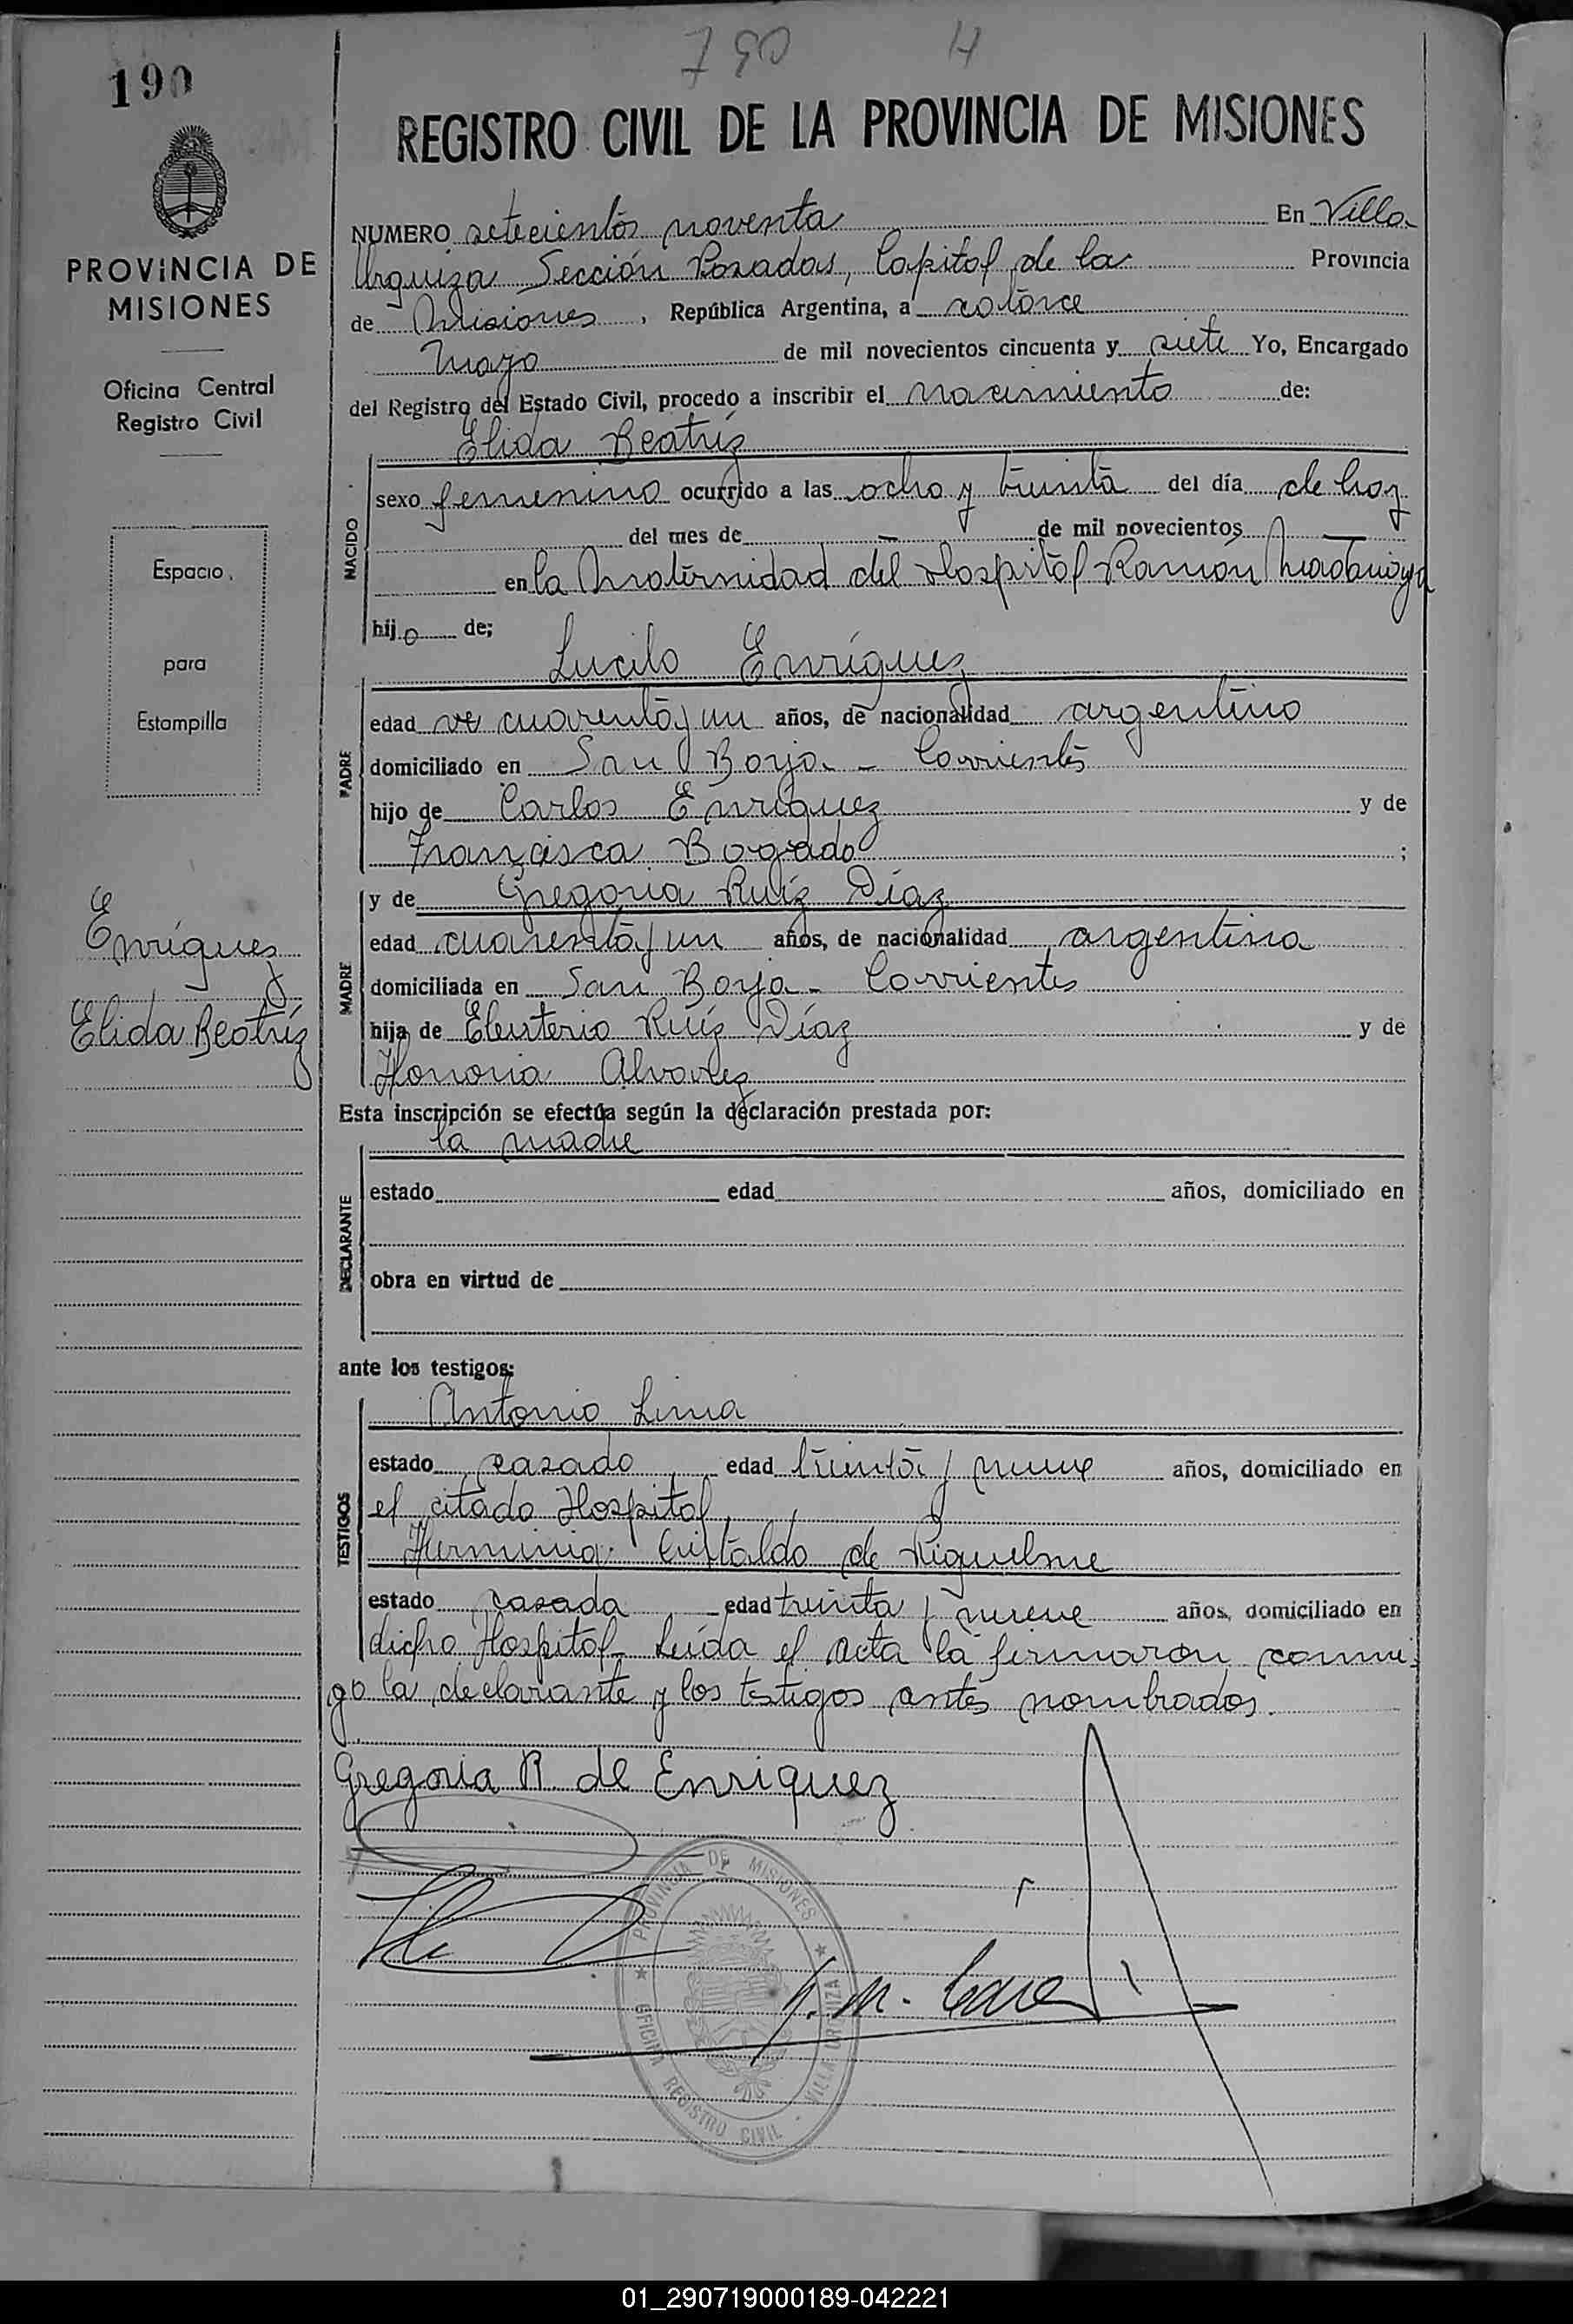 790 H
190
REGISTRO CIVIL DE LA PROVINCIA DE MISIONES
PROVINCIA DE
MISIONES
Oficina Central
Registro Civil
Espacio
para
Estampilla
Enríquez
Elida Beatríz
NUMERO setecientos noventa En Villa
Urquiza Sección Posadas, Capital de la Provincia
de Misiones, República Argentina, a catorce
Mayo de mil novecientos cincuenta y siete Yo, Encargado
del Registro del Estado Civil, procedo a inscribir el nacimiento de:
Elida Beatríz
NACIDO
sexo femenino ocurrido a las ocho y treinta del día de hoy
del mes de - de mil novecientos -
en la Maternidad del Hospital Ramón Madariaga
hijo de;
Lucilo Enríquez
PADRE
edad cuarenta y un años, de nacionalidad argentino
domiciliado en San Borja - Corrientes
hijo de Carlos Enríquez y de
Francisca Bogado ;
MADRE
y de Gregoria Ruíz Díaz
edad cuarenta y un años, de nacionalidad argentina
domiciliada en San Borja - Corrientes
hija de Eleuterio Ruíz Díaz y de
Honoria Alvarez
Esta inscripción se efectúa según la declaración prestada por:
la madre
DECLARANTE
estado edad años, domiciliado en
obra en virtud de
ante los testigos:
TESTIGOS
Antonio Lima
estado casado edad treinta y nueve años, domiciliado en
el citado Hospital
Herminia Cristaldo de Riquelme
estado casada edad treinta y nueve años, domiciliado en
dicho Hospital. Leída el acta la firmaron conmi-
go la declarante y los testigos antes nombrados.
Gregoria R. de Enriquez
PROVINCIA DE MISIONES
OFICINA REGISTRO CIVIL - VILLA URQUIZA
01_290719000189-042221